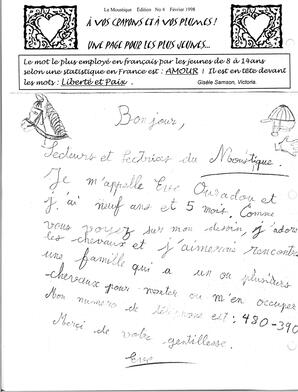 Le Moustique Edition No 4 Février 1998
À VOS CRAYONS ET À VOS PLUMES !
UNE PAGE POUR LES PLUS JEUNES...
Le mot le plus employé en français par les jeunes de 8 à 14ans
selon une statistique en France est : AMOUR ! Il est en tête devant
les mots : Liberté et Paix .
Gisèle Samson, Victoria.
Bonjour,
Lecteurs et lectrices du Moustique.
Je m'appelle Eve
j'ai neuf ans et 5 mois. Comme
vous voyez sur mon dessin, j'adore
les chevaux et j'aimerai rencontre
une famille qui a un ou plusieurs
chevaux pour monter ou m'en occuper
Mon numero de téléphone est : 480-390
Merci de votre gentillesse.
Eve